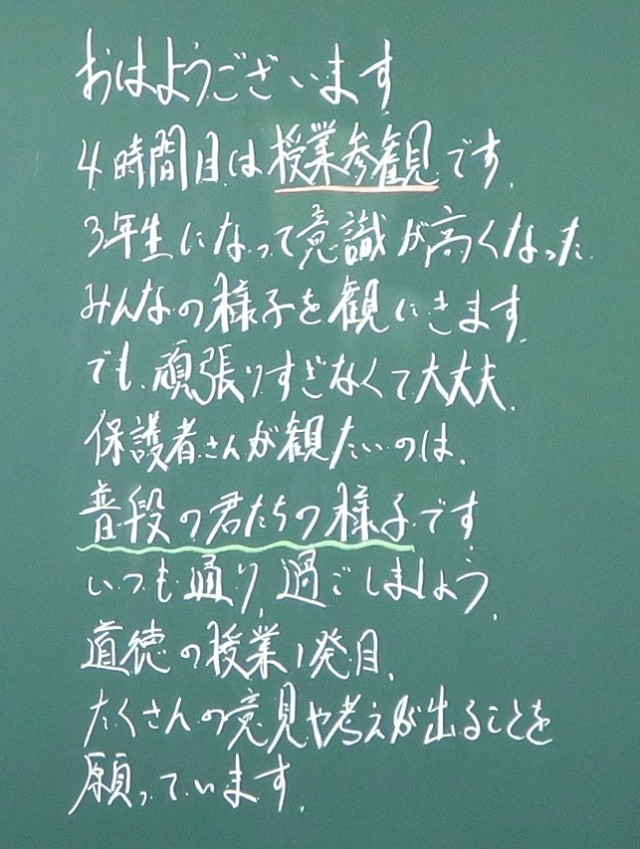 おはようございます
4時間目は授業参観です.
3年生になって意識が高くなった
みんなの様子を観にきます.
でも、頑張りすぎなくて大丈夫.
保護者さんが観たいのは、
普段の君たちの様子です
いつも通り、過ごしましょう.
道徳の授業1発目.
たくさんの意見や考えが出ることを
願っています.